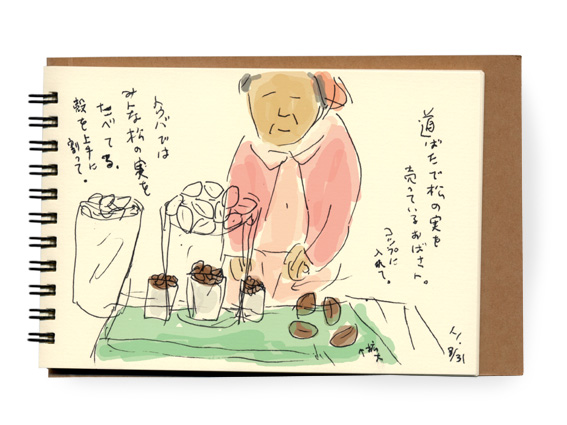 道ばたで松の実を
売っているおばさん。
コップに
入れて。
トゥバでは
みんな松の実を
たべてる。
殻を上手に
割って。
拡大
8/31